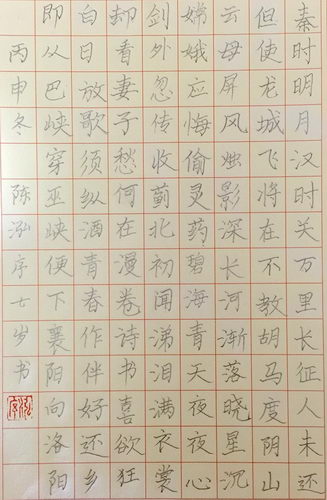 秦时明月汉时关万里长征人未还
但使龙城飞将在不教胡马度阴山
云母屏风烛影深长河渐落晓星沉
嫦娥应悔偷灵药碧海青天夜夜心
剑外忽传收蓟北初闻涕泪满衣裳
却看妻子愁何在漫卷诗书喜欲狂
自日放歌须纵酒青春作伴好还乡
即从巴峡穿巫峡便下襄阳向洛阳
丙申冬 陈泓序七岁书